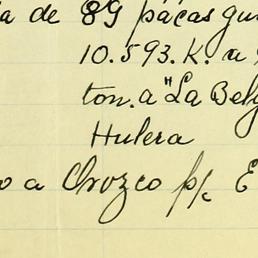 a de 89 pacas gu
10.593.K. a
ton. a "La Bel
Hulera
o a Orozco p/c E